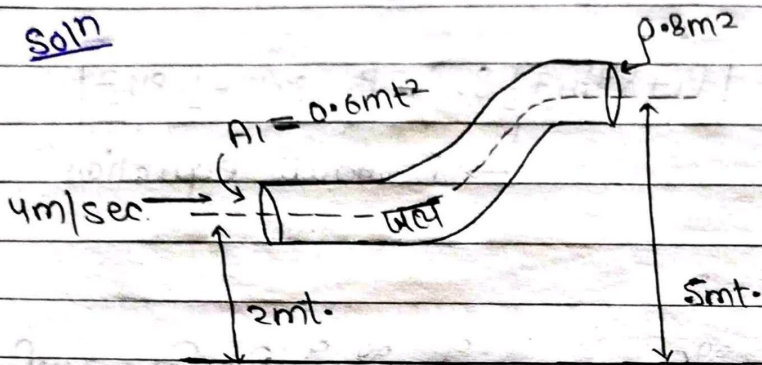 Soln
0.8m2
A1 = 0.6mt2
4m/sec.
जल
2mt.
5mt.